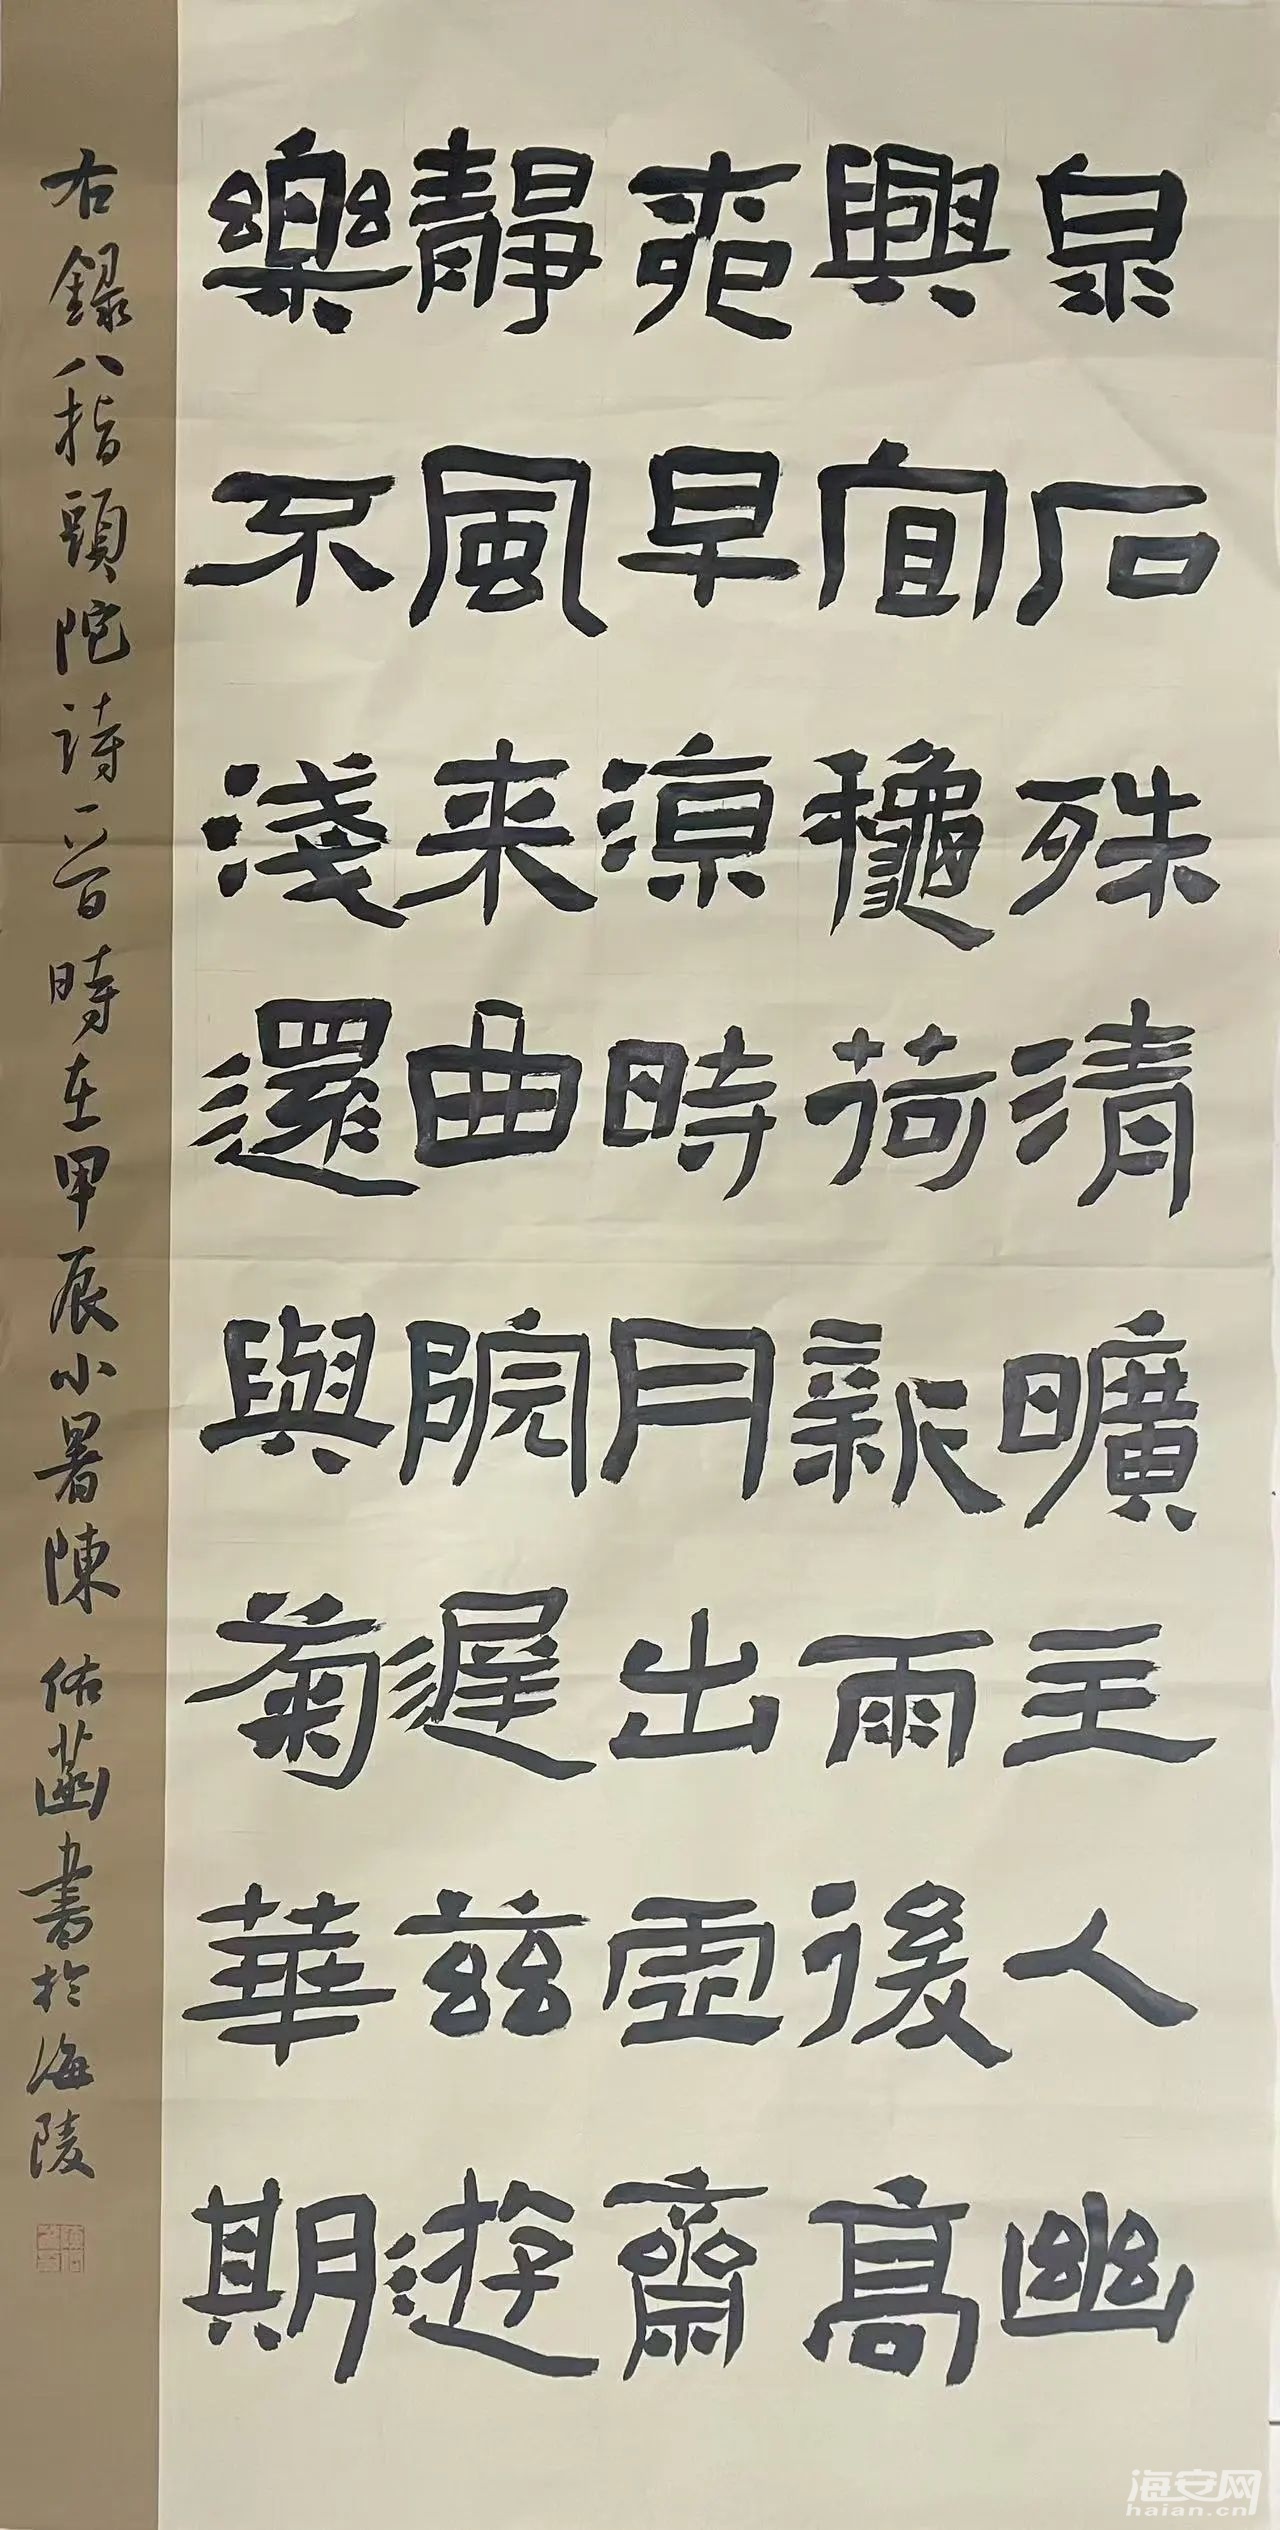 泉石殊清曠主人幽
興宜龝荷新雨後高
爽早涼時月出虛齋
靜風来曲院遲兹遊
樂不淺還與菊華期
右録八指頭陀詩一首時在甲辰小暑陳佑菡書於海陵
海安网
haian.cn